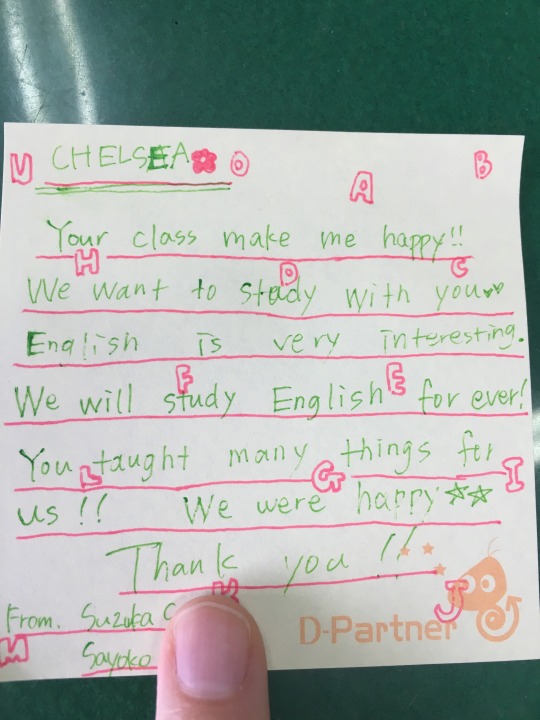 U CHELSEA O A B
Your class make me happy!!
H D C
We want to study with you♥♥
English is very interesting.
F E
We will study English for ever!
You taught many things for
L G I
us !! We were happy ☆☆
Thank you !!
J
From. Suzuka
D-Partner
M Sayoko